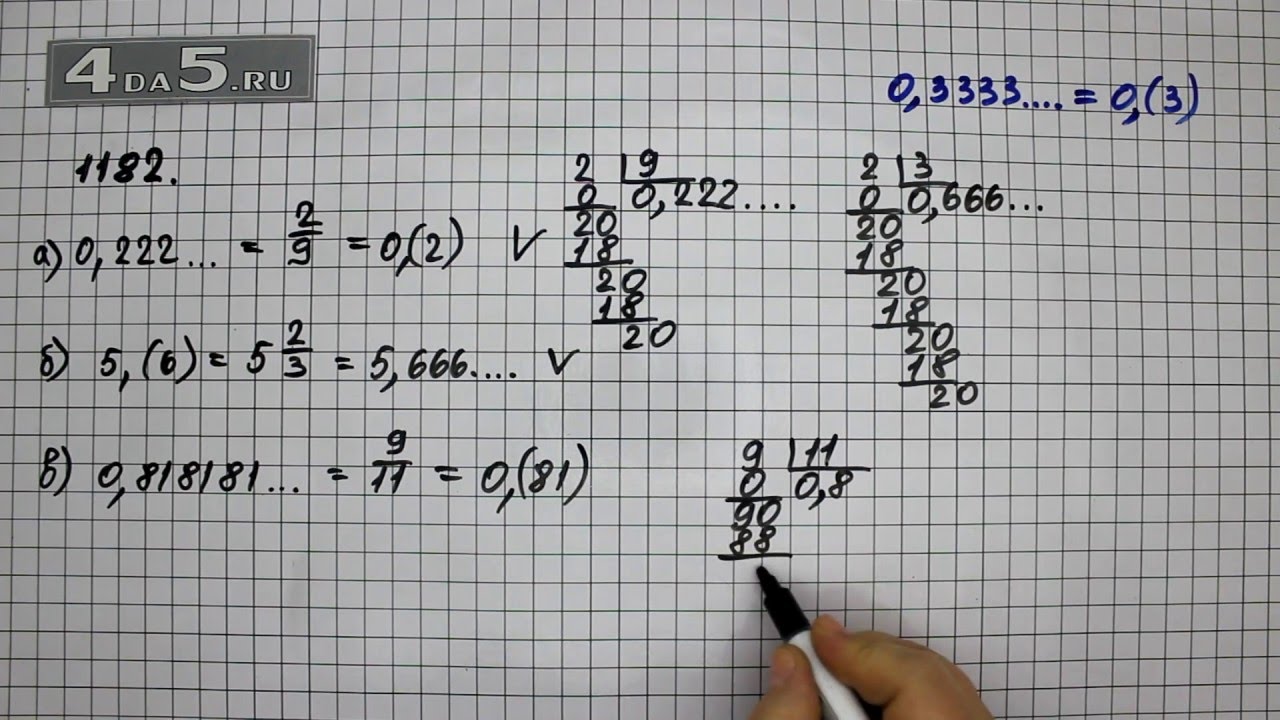 4DA5.RU
0,3333.... = 0,(3)
1182.
а) 0,222... = 2/9 = 0,(2) V
2 | 9
0 0,222....
20
18
20
18
20
2 | 3
0 0,666...
20
18
20
18
20
18
20
б) 5,(6) = 5 2/3 = 5,666.... V
в) 0,818181... = 9/11 = 0,(81)
9 | 11
0 0,8
90
88